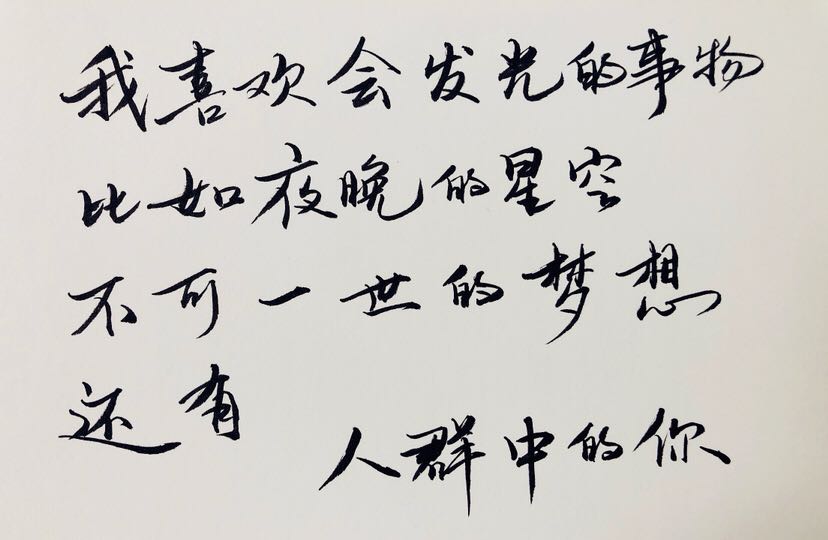 我喜欢会发光的事物
比如夜晚的星空
不可一世的梦想
还有
人群中的你